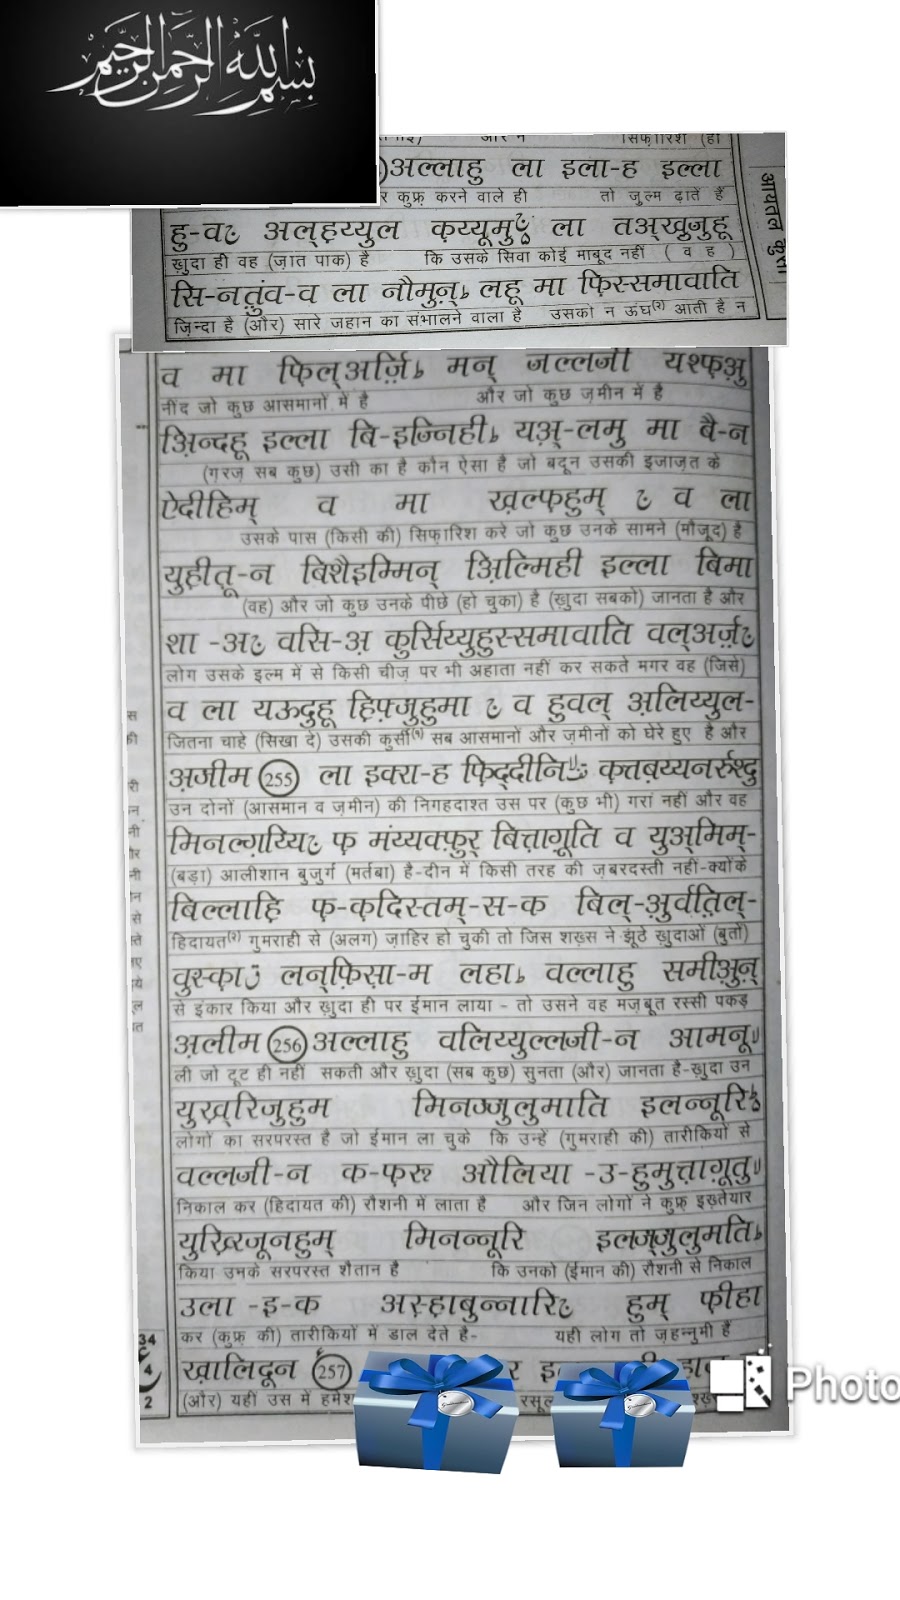 بسم الله الرحمن الرحيم
सिफ़ारिश (ही
अल्लाहु ला इला-ह इल्ला
र कुफ़्र करने वाले ही तो जुल्म ढ़ातें हैं
आयतल कुर्सी
हु-व अल्हय्युल क़य्यूमु ला तअ्खुजुहू
ख़ुदा ही वह (ज़ात पाक) है कि उसके सिवा कोई माबूद नहीं ( व ह )
सि-नतुंव-व ला नौमुन् लहू मा फ़िस्समावाति
ज़िन्दा है (और) सारे जहान का संभालने वाला है उसको न ऊंघ⁽²⁾ आती है न
व मा फ़िल्अर्ज़ि मन् जल्लजी यश्फ़अु
नींद जो कुछ आसमानों में है और जो कुछ ज़मीन में है
अि़न्दहू इल्ला बि-इज्निही यअ़्-लमु मा बै-न
(ग़रज़ सब कुछ) उसी का है कौन ऐसा है जो बदून उसकी इजाज़त के
ऐदीहिम् व मा ख़ल्फ़हुम् व ला
उसके पास (किसी की) सिफ़ारिश करे जो कुछ उनके सामने (मौजूद) है
युहीतू-न बिशैइम्मिन् अि़ल्मिही इल्ला बिमा
(वह) और जो कुछ उनके पीछे (हो चुका) है (ख़ुदा सबको) जानता है और
शा -अ वसि-अ़ कुर्सिय्युहुस्समावाति वल्अर्ज़
लोग उसके इल्म में से किसी चीज़ पर भी अहाता नहीं कर सकते मगर वह (जिसे)
व ला यऊदुहू हि़फ़्जुहुमा व हुवल् अ़लिय्युल-
जितना चाहे (सिखा दे) उसकी कुर्सी⁽¹⁾ सब आसमानों और ज़मीनों को घेरे हुए है और
अ़जीम 255 ला इक्रा-ह फ़िद्दीनि क़त्तबय्यनर्रुश्दु
उन दोनों (आसमान व ज़मीन) की निगहदाश्त उस पर (कुछ भी) गरां नहीं और वह
मिनल्ग़य्यि फ़ मंय्यक्फ़ुर् बित्ताग़ूति व युअ्मिम्-
(बड़ा) आलीशान बुजुर्ग (मर्तबा) है-दीन में किसी तरह की ज़बरदस्ती नहीं-क्योंके
बिल्लाहि फ़-क़दिस्तम्-स-क बिल्-अु़र्वतिल्-
हिदायत⁽²⁾ गुमराही से (अलग) ज़ाहिर हो चुकी तो जिस शख़्स ने झूंठे ख़ुदाओं (बुतों)
वुस्क़ा लन्फ़िसा-म लहा वल्लाहु समीअु़न्
से इंकार किया और ख़ुदा ही पर ईमान लाया - तो उसने वह मज़बूत रस्सी पकड़
अ़लीम 256 अल्लाहु वलिय्युल्लजी-न आमनू
ली जो टूट ही नहीं सकती और ख़ुदा (सब कुछ) सुनता (और) जानता है-ख़ुदा उन
युख़्रिजुहुम मिनज्जुलुमाति इलन्नूरि
लोगों का सरपरस्त है जो ईमान ला चुके कि उन्हें (गुमराही की) तारीकियों से
वल्लजी-न क-फ़रू औलिया -उ-हुमुत्ताग़ूतु
निकाल कर (हिदायत की) रौशनी में लाता है और जिन लोगों ने कुफ़्र इख़्तेयार
युख़्रिजूनहुम् मिनन्नूरि इलज्जुलुमति
किया उनके सरपरस्त शैतान है कि उनको (ईमान की) रौशनी से निकाल
उला -इ-क अस्हाबुन्नारि हुम् फ़ीहा
कर (कुफ़्र की) तारीकियों में डाल देते है- यही लोग तो ज़हन्नुमी हैं
ख़ालिदून 257
(और) यहीं उस में हमेश
34
4
2
Photo